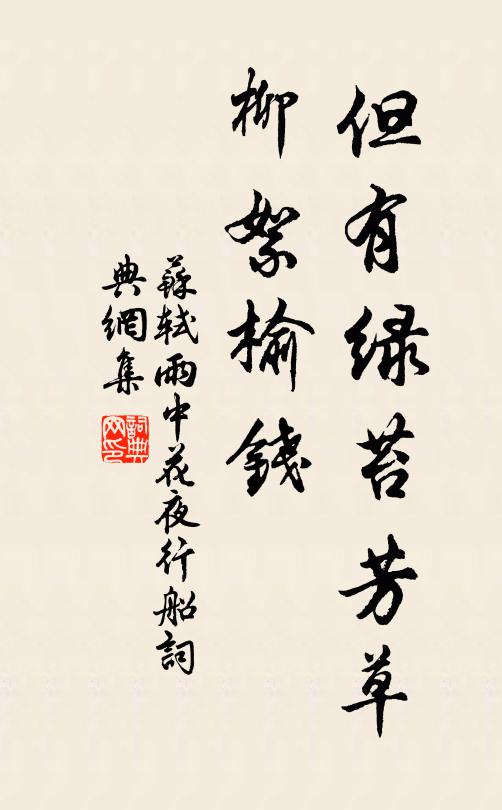 但有绿苔芳草
柳絮榆錢
蘇軾雨中花夜行船詞
典網集
詞典
网印